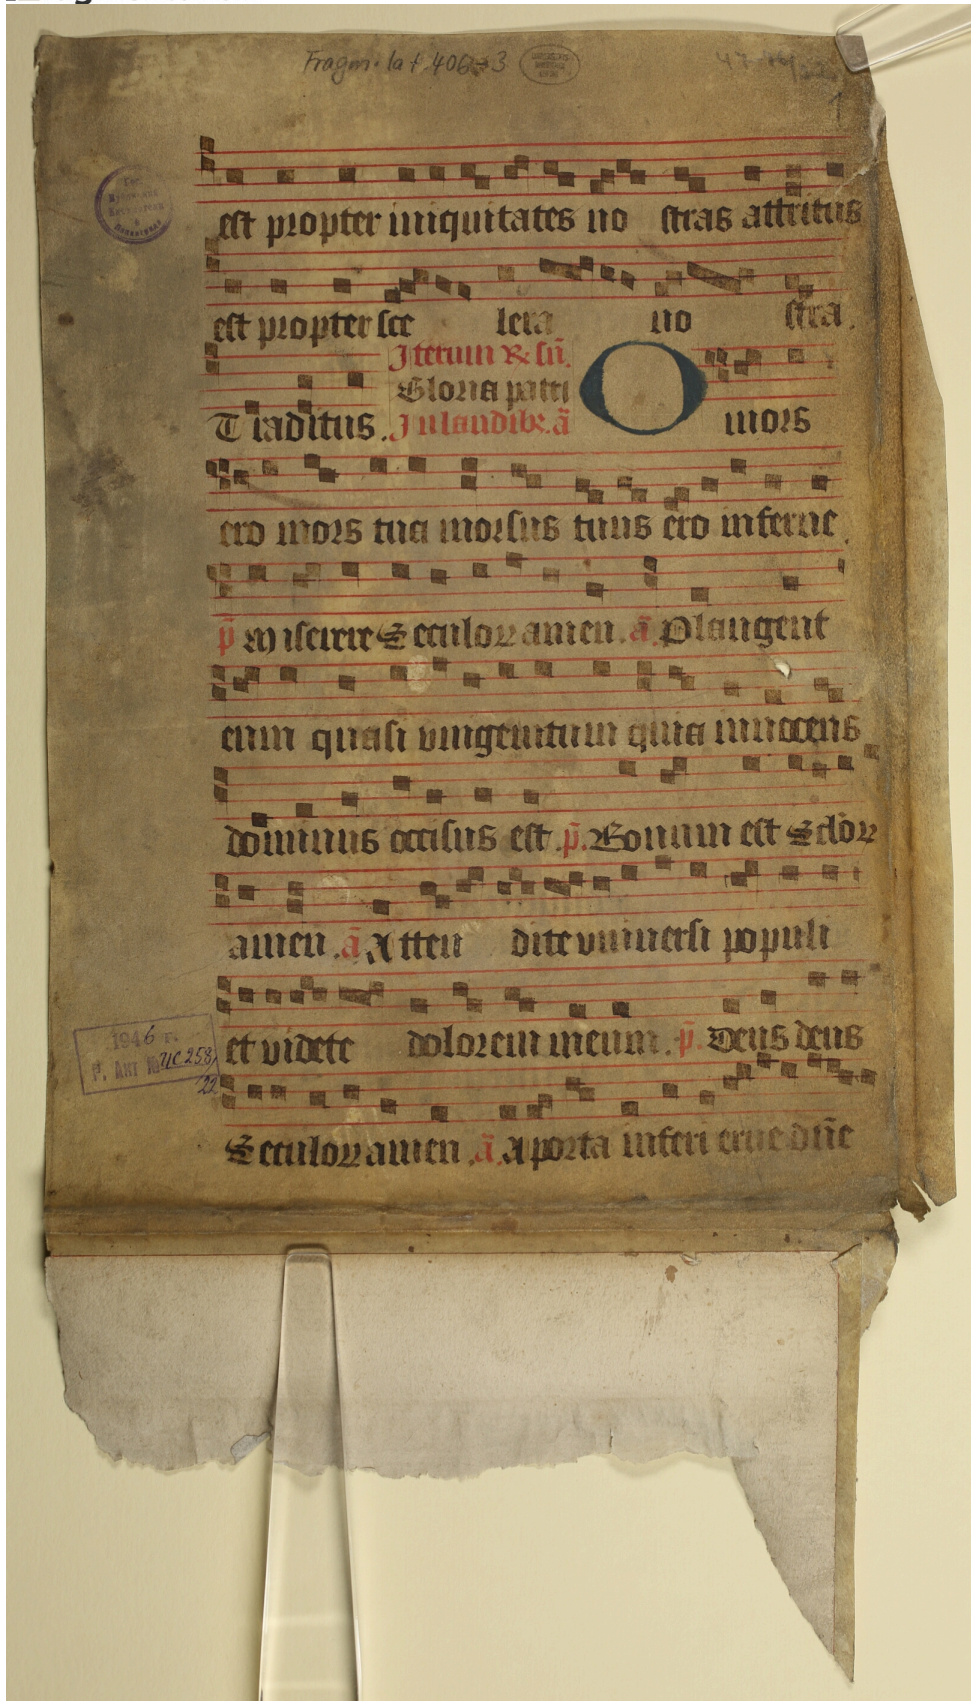 Fragm. lat. 406-3
est propter iniquitates no stras attritus
est propter sce lera no stra.
Iterum ℟ sñ.
Gloria patri
Traditus. In laudibꝫ. ã O mors
ero mors tua morsus tuus ero inferne.
p̄ Miserere Seculoꝝ amen. ã Plangent
eum quasi vnigenitum quia innocens
dominus occisus est. p̄. Bonum est Scłoꝝ
amen. ã Atten dite vniuersi populi
et videte dolorem meum. p̄. Deus deus
1946 г.
Р. Акт № ИС 258/
22
Seculoꝝ amen. ã A porta inferi erue dñe